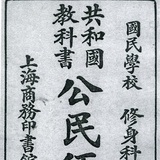 國民學校 修身科
共和國
教科書
公民
上海商務印書館